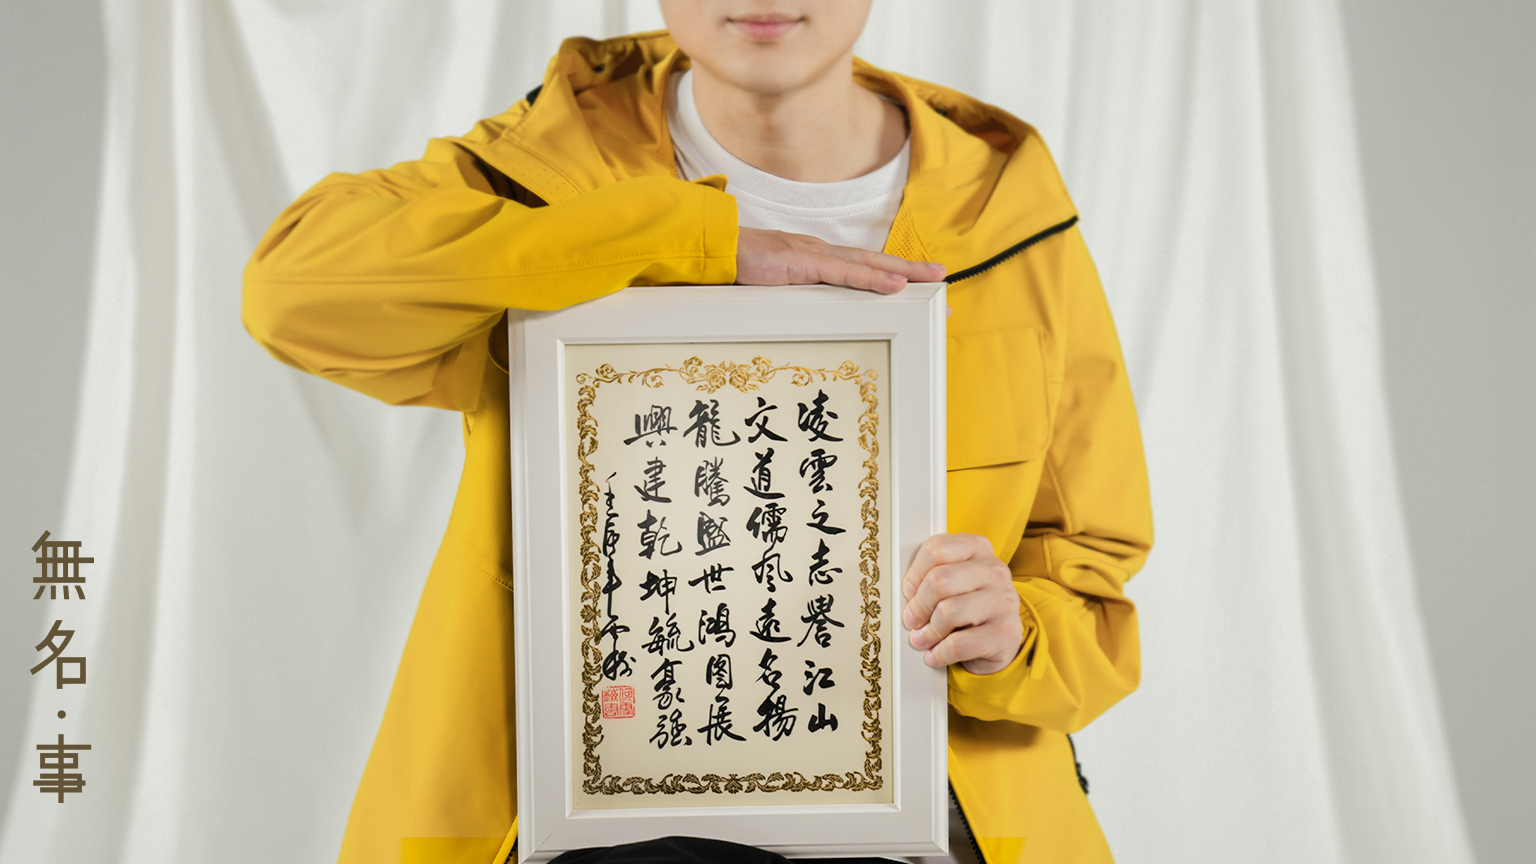 凌雲之志譽江山
文道儒風遠名揚
龍騰盛世鴻圖展
興建乾坤毓豪強
無名·事